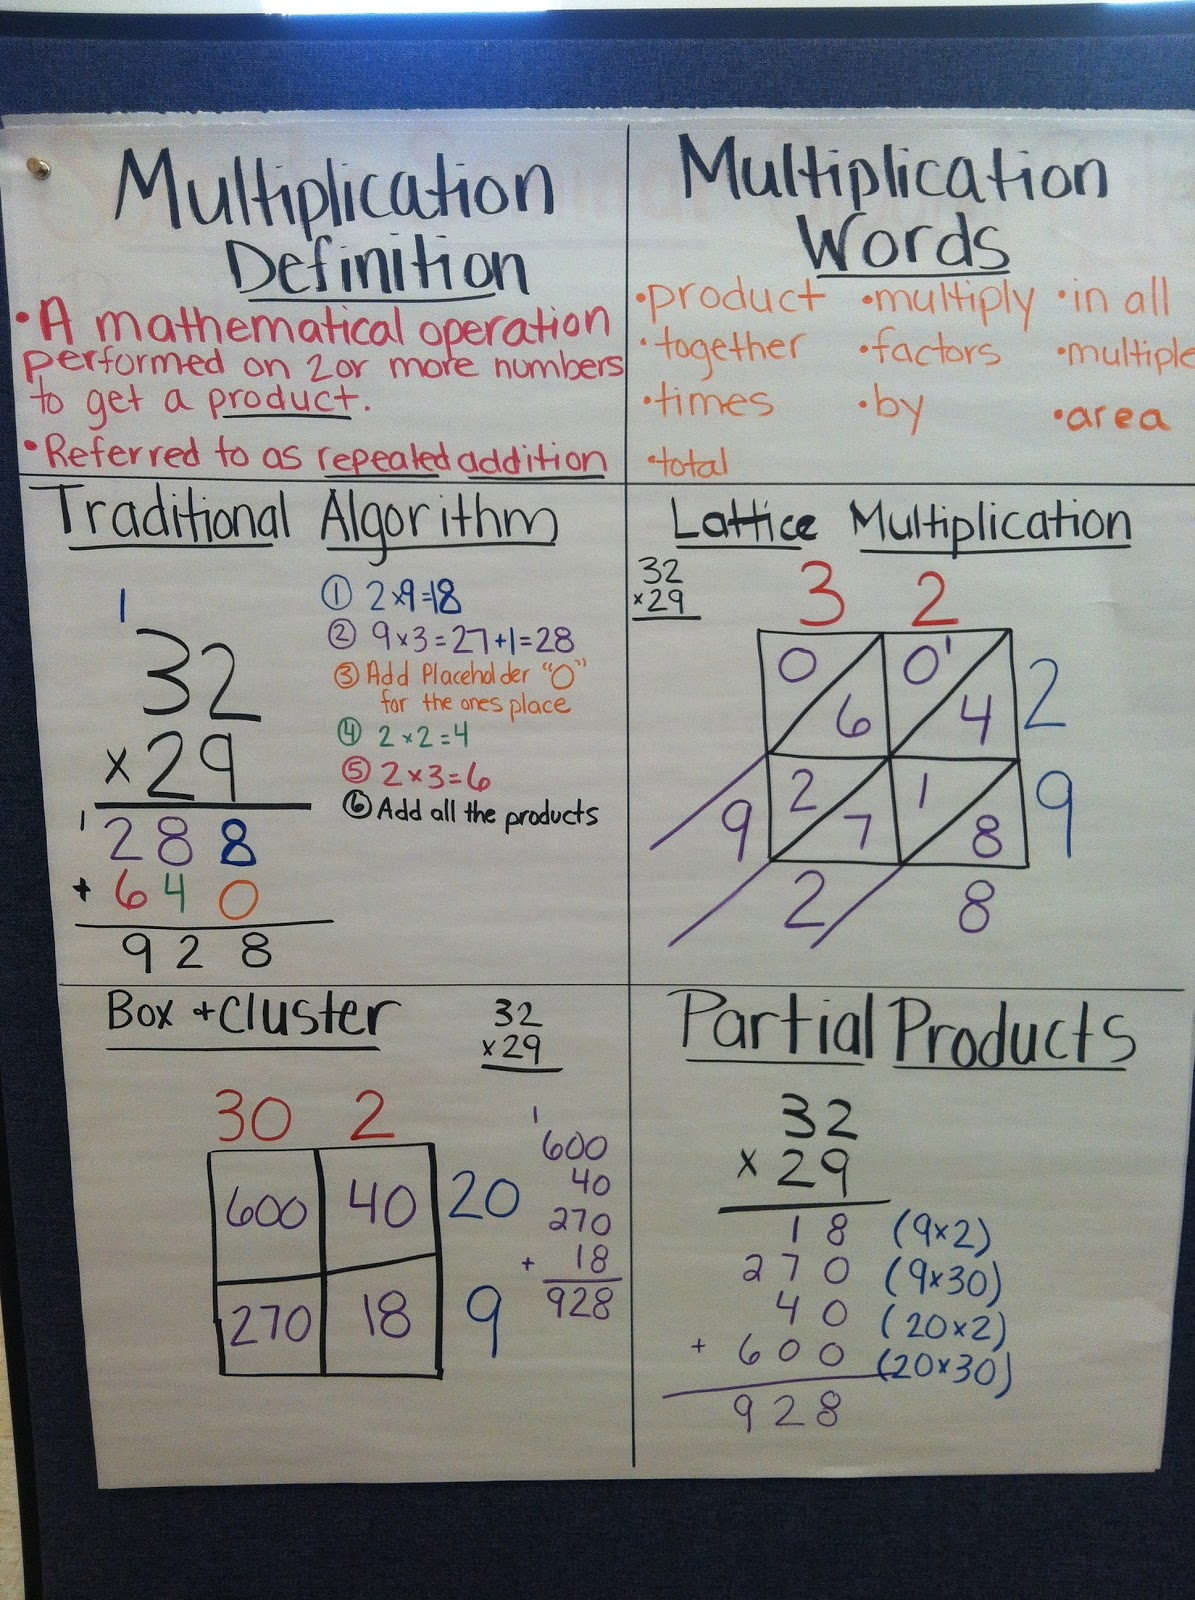 Multiplication
Definition
• A mathematical operation
performed on 2 or more numbers
to get a product.
• Referred to as repeated addition
Multiplication
Words
• product • multiply • in all
• together • factors • multiple
• times • by • area
• total
Traditional Algorithm
1
32
× 29
1
288
+ 640
928
① 2×9=18
② 9×3=27+1=28
③ Add Placeholder "0"
for the ones place
④ 2×2=4
⑤ 2×3=6
⑥ Add all the products
Lattice Multiplication
32
×29
3 2
0 0 1
6 4 2
2 1
9 7 8 9
2 8
Box + Cluster
32
×29
30 2
600 40 20
270 18 9
1
600
40
270
+ 18
928
Partial Products
32
× 29
18 (9×2)
270 (9×30)
40 (20×2)
+ 600 (20×30)
928